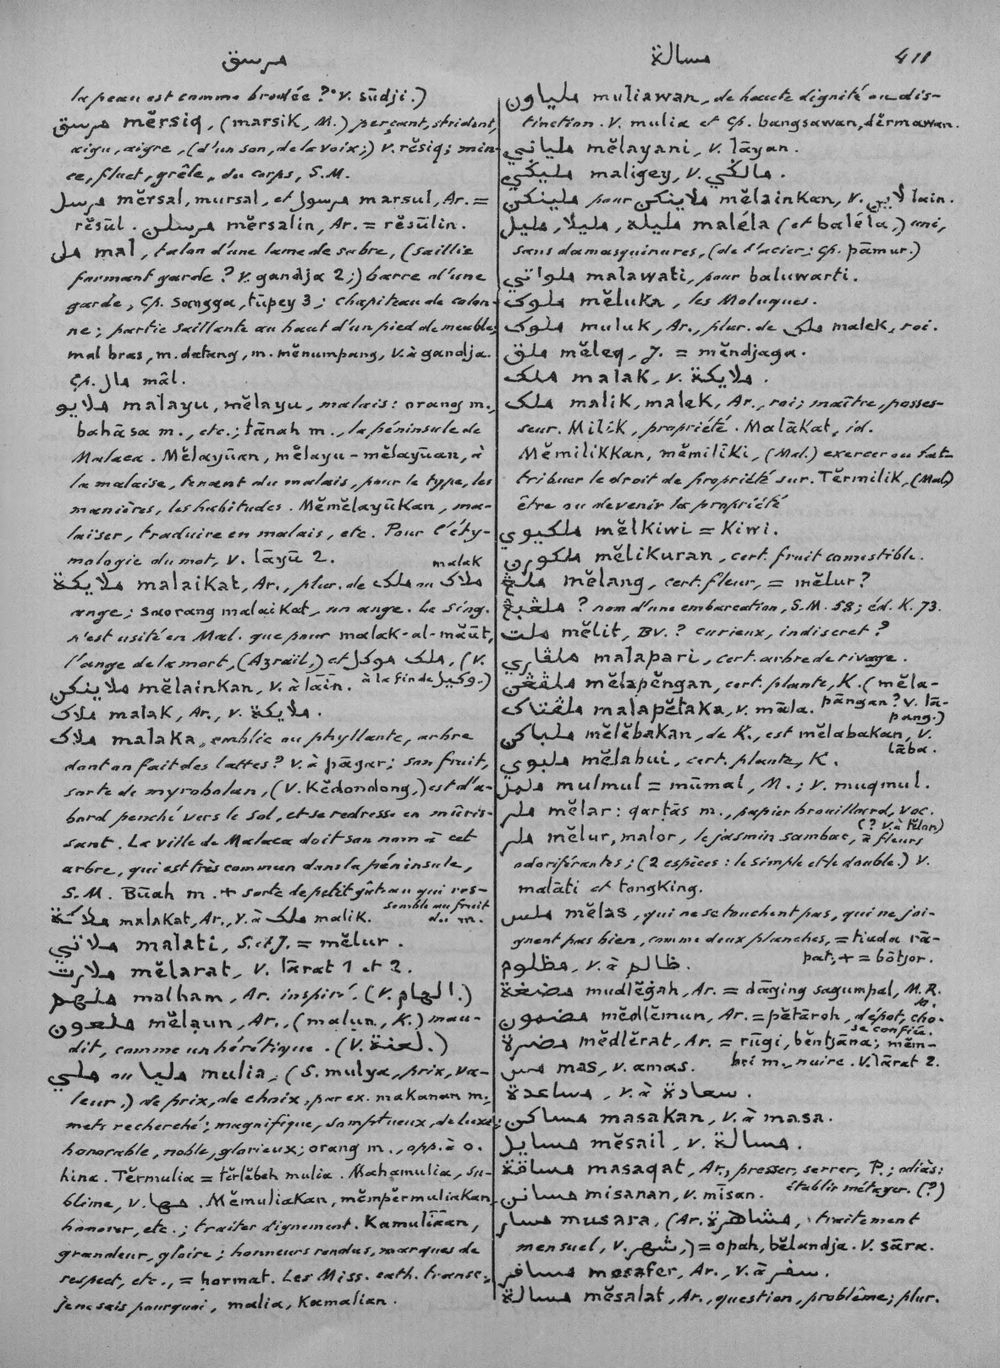 مرسق
مسالة
411
la peau est comme brodée ? v. sūdji.)
مرسق mĕrsiq, (marsik, M.) perçant, strident,
aigu, aigre, (d'un son, de la voix;) v. rĕsiq; min-
ce, fluet, grêle, du corps, S.M.
مرسل mĕrsal, mursal, et مرسول marsul, Ar. =
rĕsūl. مرسلن mĕrsalin, Ar. = rĕsūlin.
مل mal, talon d'une lame de sabre, (saillie
formant garde ? v. gandja 2;) barre d'une
garde, cp. sangga, tūpey 3; chapiteau de colon-
ne; partie saillante au haut d'un pied de meuble;
mal bras, m. datang, m. mĕnumpang, v. à gandja.
Cp. مال māl.
ملايو malayu, mĕlayu, malais: orang m.,
bahāsa m., etc.; tānah m., la péninsule de
Malaca. Mĕlayūan, mĕlayu-mĕlayūan, à
la malaise, tenant du malais, pour le type, les
manières, les habitudes. Mĕmĕlayūkan, ma-
laïser, traduire en malais, etc. Pour l'éty-
mologie du mot, v. lāyū 2.
ملايكة malaikat, Ar., plur. de ملك ou ملاك malak
ange; saorang malaikat, un ange. Le sing.
n'est usité en Mal. que pour malak-al-māūt,
l'ange de la mort, (Azraïl,) et ملك موكل, (v.
وكيل à la fin de.)
ملاينكن mĕlainkan, v. à lāin.
ملاک malak, Ar., v. ملايكة.
ملاک malaka, emblic ou phyllante, arbre
dont on fait des lattes? v. à pāgar; son fruit,
sorte de myrobolan, (v. kĕdondong,) est d'a-
bord penché vers le sol, et se redresse en mûris-
sant. La ville de Malaca doit son nom à cet
arbre, qui est très commun dans la péninsule,
S.M. Būah m. + sorte de petit gâteau qui res-
semble au fruit du m.
ملاكة malakat, Ar., v. à ملك malik.
ملاتي malati, S. et J. = mĕlur.
ملارت mĕlarat, v. lārat 1 et 2.
ملهم malham, Ar. inspiré. (v. الهام.)
ملعون mĕlạun, Ar., (malun, K.) mau-
dit, comme un hérétique. (v. لعنة.)
ملي ou مليا mulia, (S. mulya, prix, va-
leur.) de prix, de choix, par ex. makanan m.,
mets recherché; magnifique, somptueux, de luxe;
honorable, noble, glorieux; orang m., opp. à o.
hina. Tĕrmulia = tĕrlĕbeh mulia. Mahamulia, su-
blime, v. مها. Mĕmuliakan, mĕmpĕrmuliakan,
honorer, etc.; traiter dignement. Kamulīāan,
grandeur, gloire; honneurs rendus, marques de
respect, etc., = hormat. Les Miss. cath. transc.,
je ne sais pourquoi, malia, kamalian.
ملياون muliawan, de haute dignité ou dis-
tinction. v. mulia et cp. bangsawan, dĕrmawan.
ملياني mĕlayani, v. lāyan.
مليكي maligey, v. مالكي.
ملينكن pour ملاينكن mĕlainkan, v. لاين lain.
مليله, مليلا, مليل maléla (et baléla,) uni,
sans damasquinures, (de l'acier; cp. pāmur.)
ملواتي malawati, pour baluwarti.
ملوک mĕluka, les Moluques.
ملوک muluk, Ar., plur. de ملك malek, roi.
ملق mĕleq, J. = mĕndjaga.
ملک malak, v. ملايكة.
ملک malik, malek, Ar., roi; maître, posses-
seur. Milik, propriété. Malākat, id.
Mĕmilikkan, mĕmilīki, (Mal.) exercer ou s'at-
tribuer le droit de propriété sur. Tĕrmilik, (Mal.)
être ou devenir la propriété
ملكيوي mĕlkiwi = kiwi.
ملكورن mĕlikuran, cert. fruit comestible.
ملڠ mĕlang, cert. fleur, = mĕlur?
ملڤبڠ ? nom d'une embarcation, S.M. 58; éd. K. 73.
ملت mĕlit, BV. ? curieux, indiscret?
ملڤاري malapari, cert. arbre de rivage.
ملڤڠن mĕlapĕngan, cert. plante, K. (mĕla-
pāngan? v. lā-
pang.)
ملڤتاک malapĕtaka, v. māla.
ملباكن mĕlĕbakan, de K., est mĕlabakan, v.
lāba.
ملبوي mĕlabui, cert. plante, K.
ململ mulmul = mūmal, M.; v. muqmul.
ملر mĕlar: qarṭās m., papier brouillard, voc.
(? v. à tĕlor)
ملر mĕlur, malor, le jasmin sambac, à fleurs
odoriférantes; (2 espèces: le simple et le double.) v.
malāti et tongking.
ملس mĕlas, qui ne se touchent pas, qui ne joi-
gnent pas bien, comme deux planches, = tiada rā-
pat, + = bōtjor.
مظلوم, v. à ظالم.
مضغة mudlĕgah, Ar. = dāging sagumpal, M.R.
مضمون mĕdlĕmun, Ar. = pĕtāroh, dépot, cho-
se confiée.
مضرة mĕdlĕrat, Ar. = rūgi, bĕntjāna; mĕm-
bri m., nuire. v. lārat 2.
مس mas, v. amas.
مساعدة, v. à سعادة.
مساكن masakan, v. à masa.
مسايل mĕsail, v. مسالة.
مساقة masaqat, Ar., presser, serrer, P.; adiās:
établir métayer. (?)
مسانن misanan, v. mīsan.
مسار musara, (Ar. مشاهرة, traitement
mensuel, v. شهر,) = opah, bĕlandja. v. sāra.
مسافر mosafer, Ar., v. à سفر.
مسالة mĕsalat, Ar., question, problême; plur.